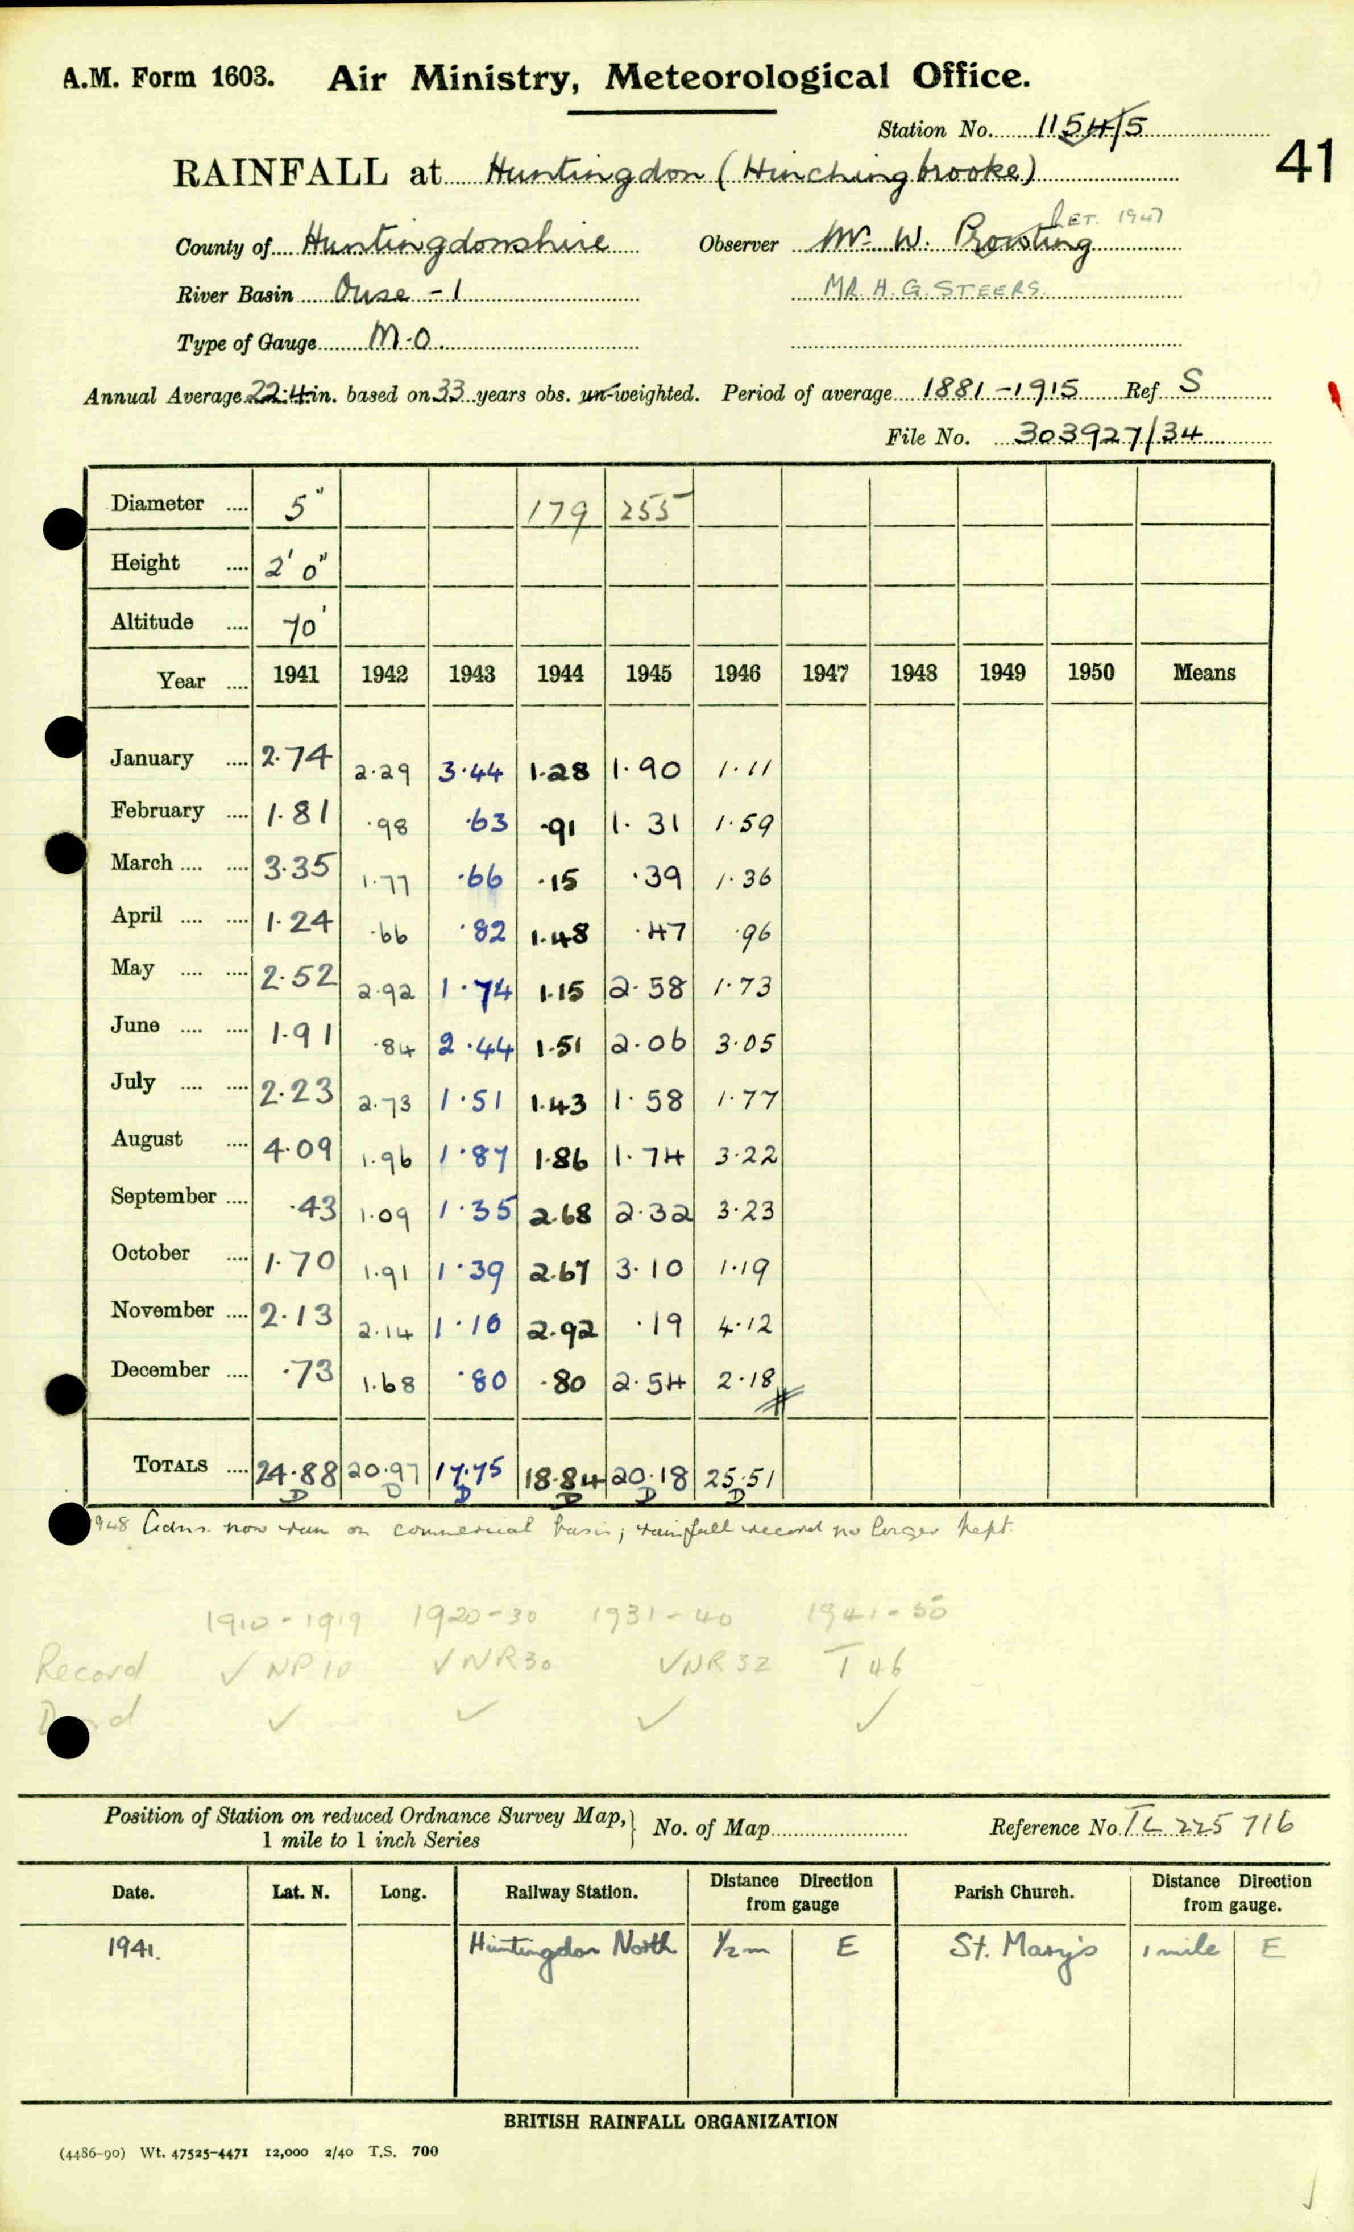 A.M. Form 1603. Air Ministry, Meteorological Office.
Station No. 1154/5
41
RAINFALL at Huntingdon (Hinchingbrooke)
RET. 1947
County of Huntingdonshire Observer Mr W. Prowting
River Basin Ouse - 1 MR. H. G. STEERS.
Type of Gauge M.O.
Annual Average 22.4 in. based on 33 years obs. un-weighted. Period of average 1881-1915 Ref. S
File No. 303927/34
Diameter .... 5" 179 255
Height .... 2' 0"
Altitude .... 70'
Year .... 1941 1942 1943 1944 1945 1946 1947 1948 1949 1950 Means
January .... 2.74 2.29 3.44 1.28 1.90 1.11
February .... 1.81 .98 .63 .91 1.31 1.59
March .... .... 3.35 1.77 .66 .15 .39 1.36
April .... .... 1.24 .66 .82 1.48 .47 .96
May .... .... 2.52 2.92 1.74 1.15 2.58 1.73
June .... .... 1.91 .84 2.44 1.51 2.06 3.05
July .... .... 2.23 2.73 1.51 1.43 1.58 1.77
August .... 4.09 1.96 1.87 1.86 1.74 3.22
September .... .43 1.09 1.35 2.68 2.32 3.23
October .... 1.70 1.91 1.39 2.67 3.10 1.19
November .... 2.13 2.14 1.10 2.92 .19 4.12
December .... .73 1.68 .80 .80 2.54 2.18
TOTALS .... 24.88 20.97 17.75 18.84 20.18 25.51
D D D D D D
948 Gdns. now run on commercial basis; rainfall record no longer kept.
1910-1919 1920-30 1931-40 1941-50
Record ✓ NP10 ✓ NR30 ✓ NR32 T 46
✓ ✓ ✓ ✓
Position of Station on reduced Ordnance Survey Map, 1 mile to 1 inch Series } No. of Map Reference No. TL 225 716
Date. Lat. N. Long. Railway Station. Distance Direction from gauge Parish Church. Distance Direction from gauge.
1941. Huntingdon North 1/2 m E St. Mary's 1 mile E
BRITISH RAINFALL ORGANIZATION
(4486-90) Wt. 47525-4471 12,000 2/40 T.S. 700